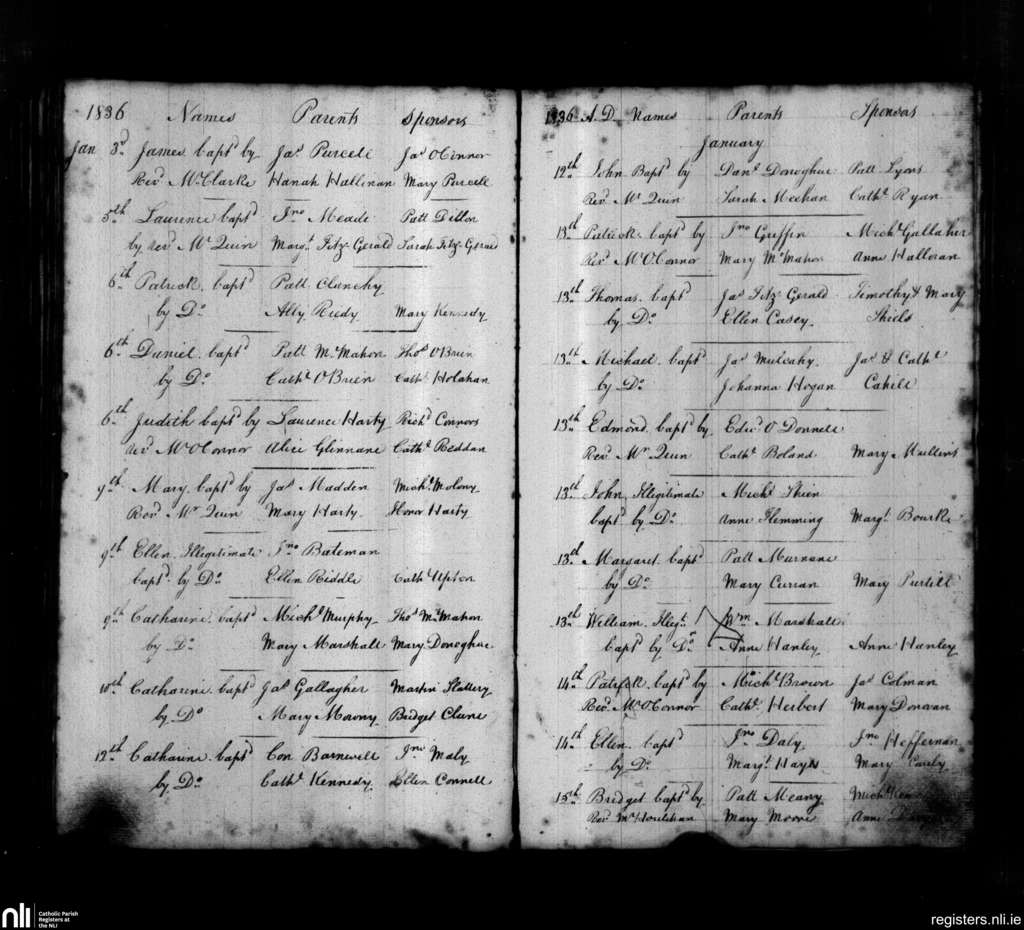 1836 Names Parents Sponsors
Jan 3d James bapd by Jas Purcell Jas O'Connor
Revd Mr Clarke Hanah Hallinan Mary Purcell
5th Laurence bapd Jno Meade Patt Dillon
by Revd Mr Quin Margt Fitz-Gerald Sarah Fitz-Gerald
6th Patrick bapd Patt Clanchy
by Do Ally Reedy Mary Kennedy
6th Daniel bapd Patt McMahon Thos O'Brien
by Do Cathe O'Brien Cathe Holahan
6th Judith bapd by Laurence Harty Richd Connors
Revd Mr O'Connor Alice Glinnane Cathe Reddan
9th Mary bapd by Jas Madden Michl Molony
Revd Mr Quin Mary Harty Honor Harty
9th Ellen Illegitimate Jno Bateman
bapd by Do Ellen Riddle Cathe Upton
9th Catharine bapd Michl Murphy Thos McMahon
by Do Mary Marshall Mary Donoghue
10th Catharine bapd Jas Gallagher Martin Slattery
by Do Mary Morony Bridget Clune
12th Catharine bapd Con Barnwell Jno Maly
by Do Cathe Kennedy Ellen Connell
1836 A.D. Names Parents Sponsors
January
12th John Bapd by Danl Donoghue Patt Lyons
Revd Mr Quin Sarah Meehan Cathe Ryan
13th Patrick bapd by Jno Griffin Michl Gallaher
Revd Mr O'Connor Mary McMahon Anne Halloran
13th Thomas bapd Jas Fitz-Gerald Timothy & Mary
by Do Ellen Casey Shiels
13th Michael bapd Jas Mulcahy Jas & Cathe
by Do Johanna Hogan Cahill
13th Edmond bapd by Edwd O Donnell
Revd Mr Quin Cathe Boland Mary Mullins
13th John Illegitimate Michl Shien
bapd by Do Anne Flemming Margt Bourke
13th Margaret bapd Patt Murnane
by Do Mary Curran Mary Purtill
13th William Illegt Wm Marshall
bapd by Do Anne Hanley Anne Hanley
14th Patrick bapd by Michl Brown Jas Colman
Revd Mr O'Connor Cathe Herbert Mary Donovan
14th Ellen bapd Jno Daly Jno Heffernan
by Do Margt Hayes Mary Carey
15th Bridget bapd by Patt Meany Michl
Revd Mr Houlihan Mary Moore Anne
nli Catholic Parish
Registers at
the NLI
registers.nli.ie